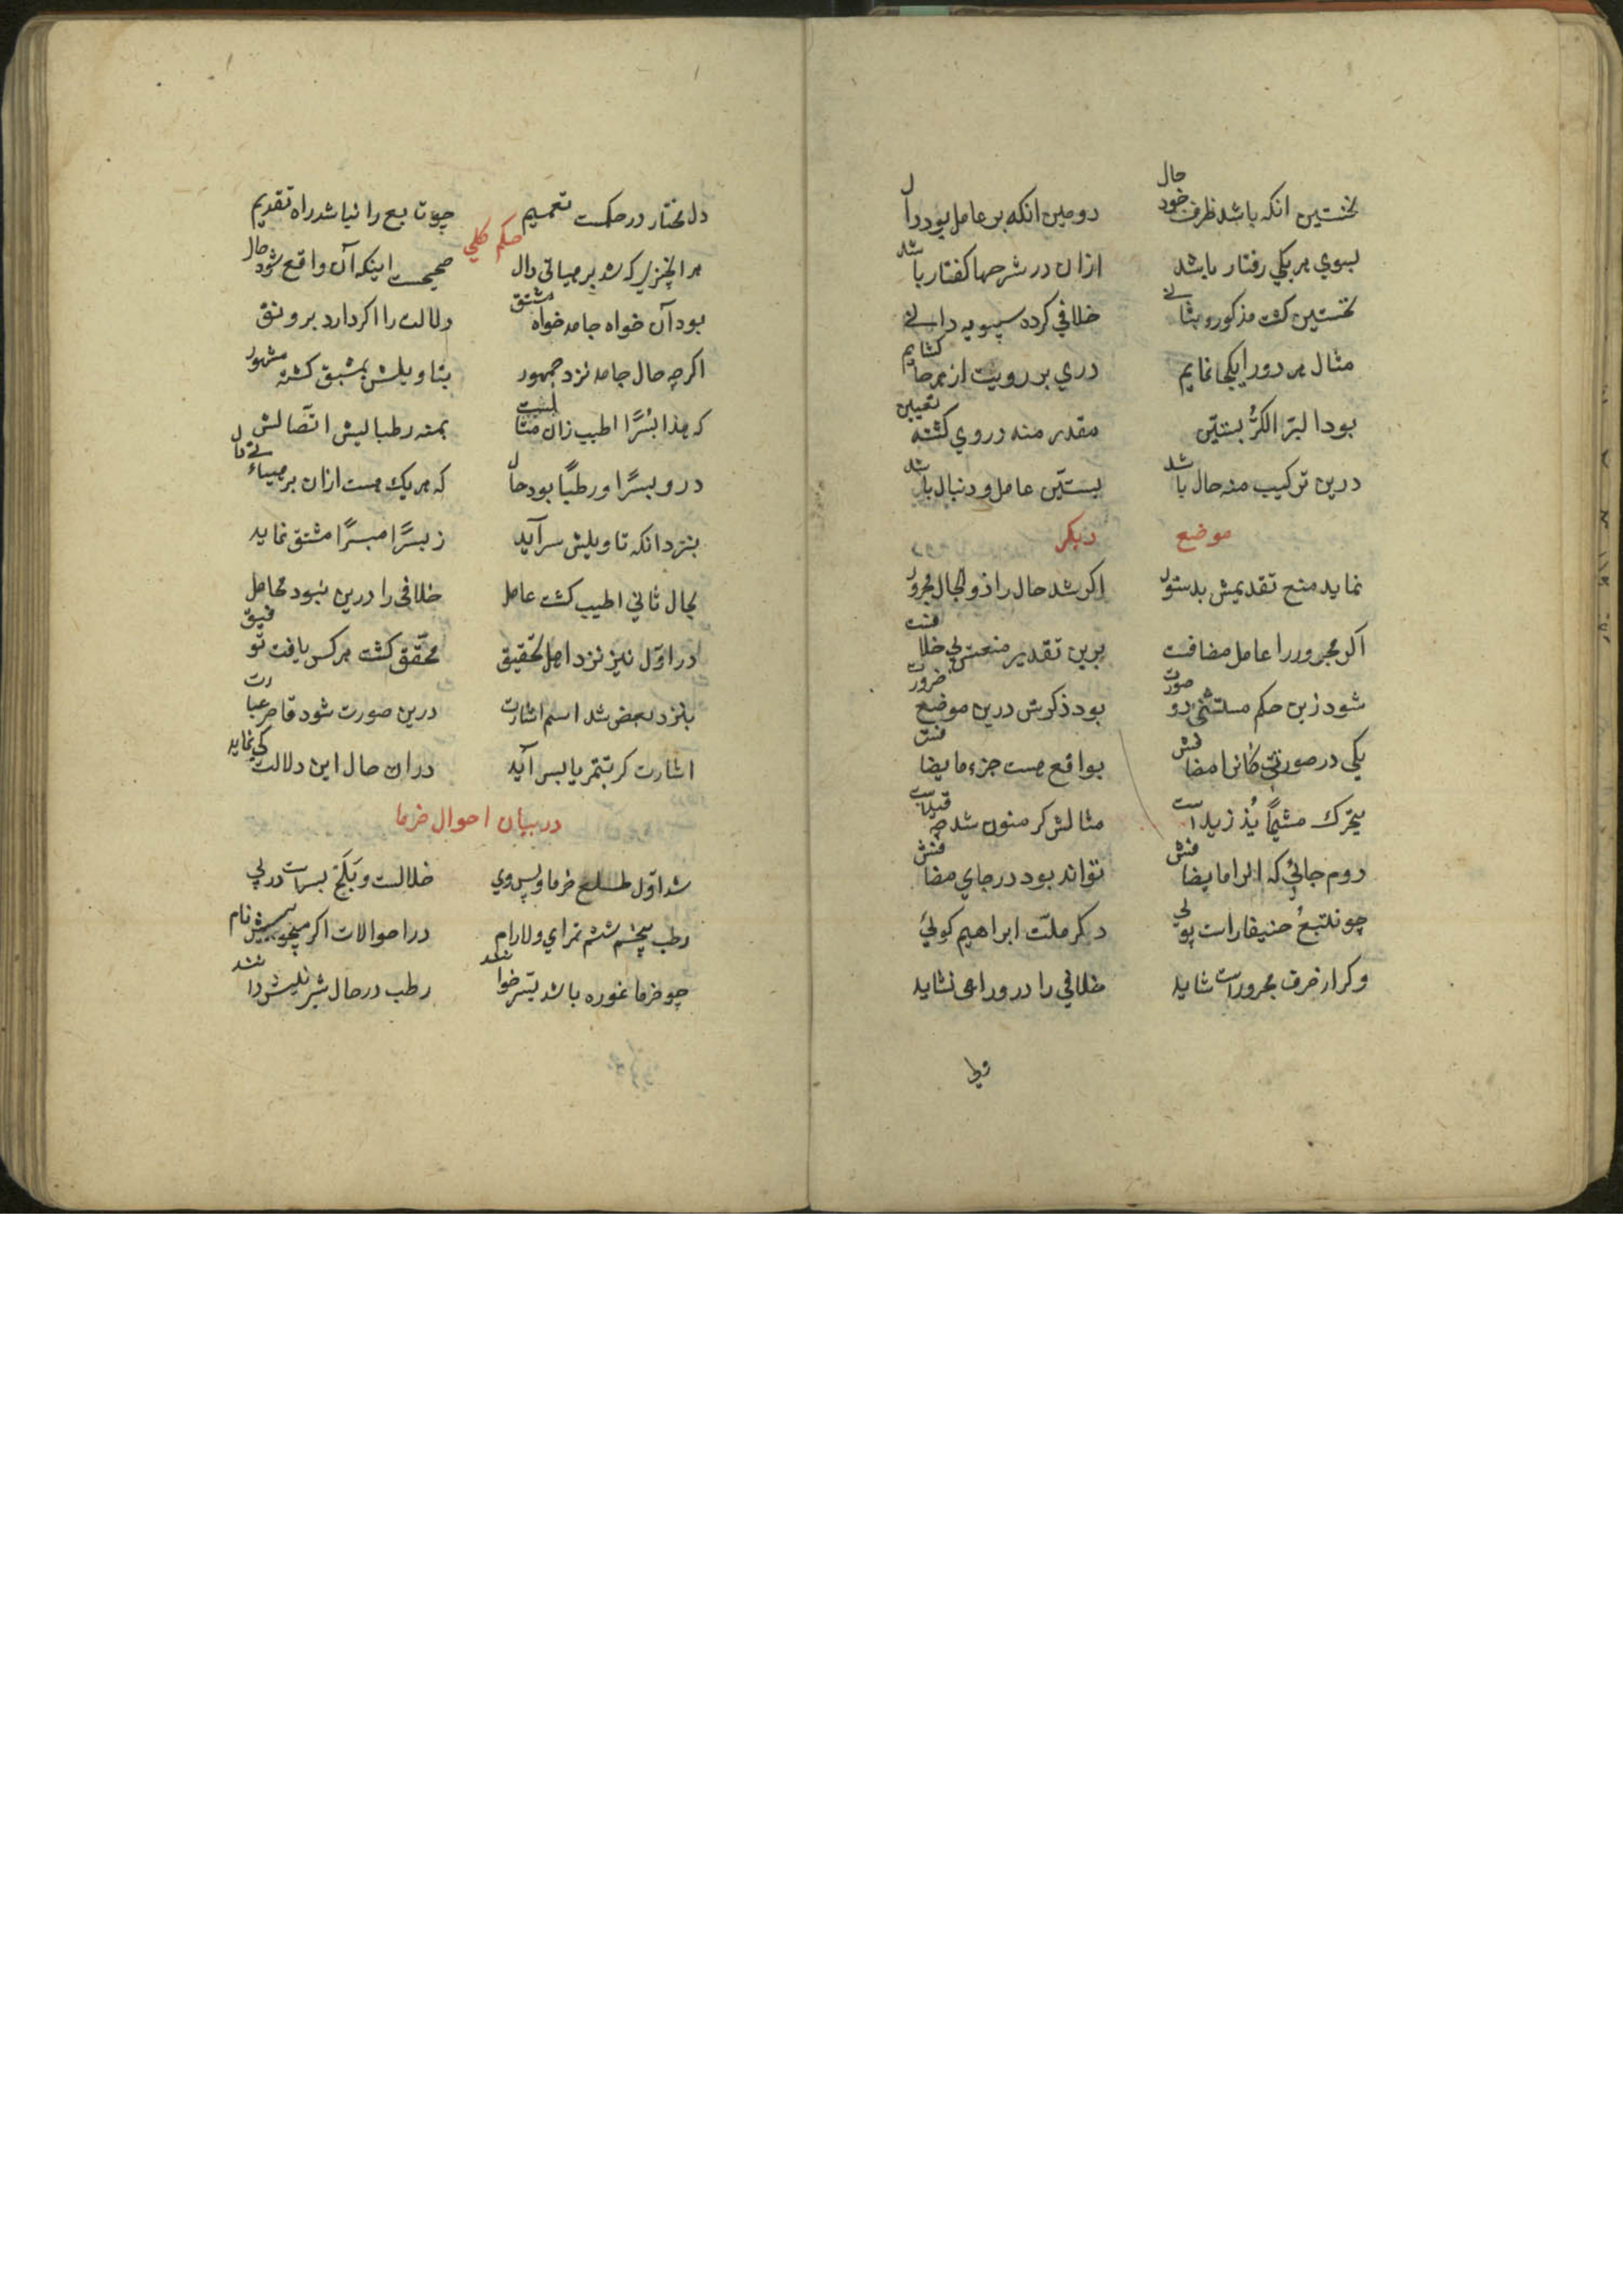 نخستین انکه باشد ظرف خود حال دومین انکه بر عامل بود دال
بسوی هر یکی رفتار باشد ازان در شرحها کفتار باشد
نخستین کشت مذکور و بثانی خلافی کرده سیبویه دانی
مثال هر دو را یکجا نمایم دری بر رویت از هر جا کشایم
بود البرّ الکرُّ بستین مقدر منه در وی کشته تعیین
درین ترکیب منه حال باشد بستین عامل و دنبال باشد
موضع دیکر
نماید منع تقدیمش بدستور اکر شد حال را ذو الحال مجرور
اکر مجرور را عامل مضافست برین تقدیر منعش بی خلافست
شود زین حکم مستثنی دو صورت بود ذکرش درین موضع ضرورت
یکی در صورتی کانرا مضافش بواقع هست جزء ما یضافش
دوم جائی که انرا ما یضافش تواند بود در جای مضافش
چو نتبع حنیفا راست پویی دکر ملّت ابراهیم کوئی
وکر از حرف مجرورست شاید خلافی را درو راهی نشاید
ولی
دل مختار در حکمت تعمیم چو تابع را نباشد راه تقدیم
حکم کلی
هر انچیزی که شد بر هیاتی دال صحیحست اینکه آن واقع شود حال
بود آن خواه جامد خواه مشتق دلالت را اکر دارد برونق
اکرچه حال جامد نزد جمهور بتاویلش بمشتق کشته مشهور
که هذا بُسْرًا اطیب زان مثالست بمنه رطبا لبش اتّصالش
درو بسرًا و رطبًا بود حال که هر یک هست ازان بر هیاءتی دال
بنزد انکه تاویلش سرآید ز بسرًا مبسرًا مشتق نماید
بحال ثانی اطیب کشت عامل خلافی را درین نبود محامل
در اوّل نیز نزد اهل تحقیق محقّق کشت هر کس یافت توفیق
بنزد بعض شد اسم اشارت درین صورت شود قاصر عبارت
اشارت کر بتمر یا بسر آید دران حال این دلالت کی نماید
در بیان احوال خرما
شد اوّل طلع خرما و پس وی خلالست و بَلَخ بسراست در پی
رطب پنجم ششم تمر ای دلارام در احوالات اکر میجوییش نام
چو خرما غوره باشد بسر خوانند رطب در حال شیرینیش دانند